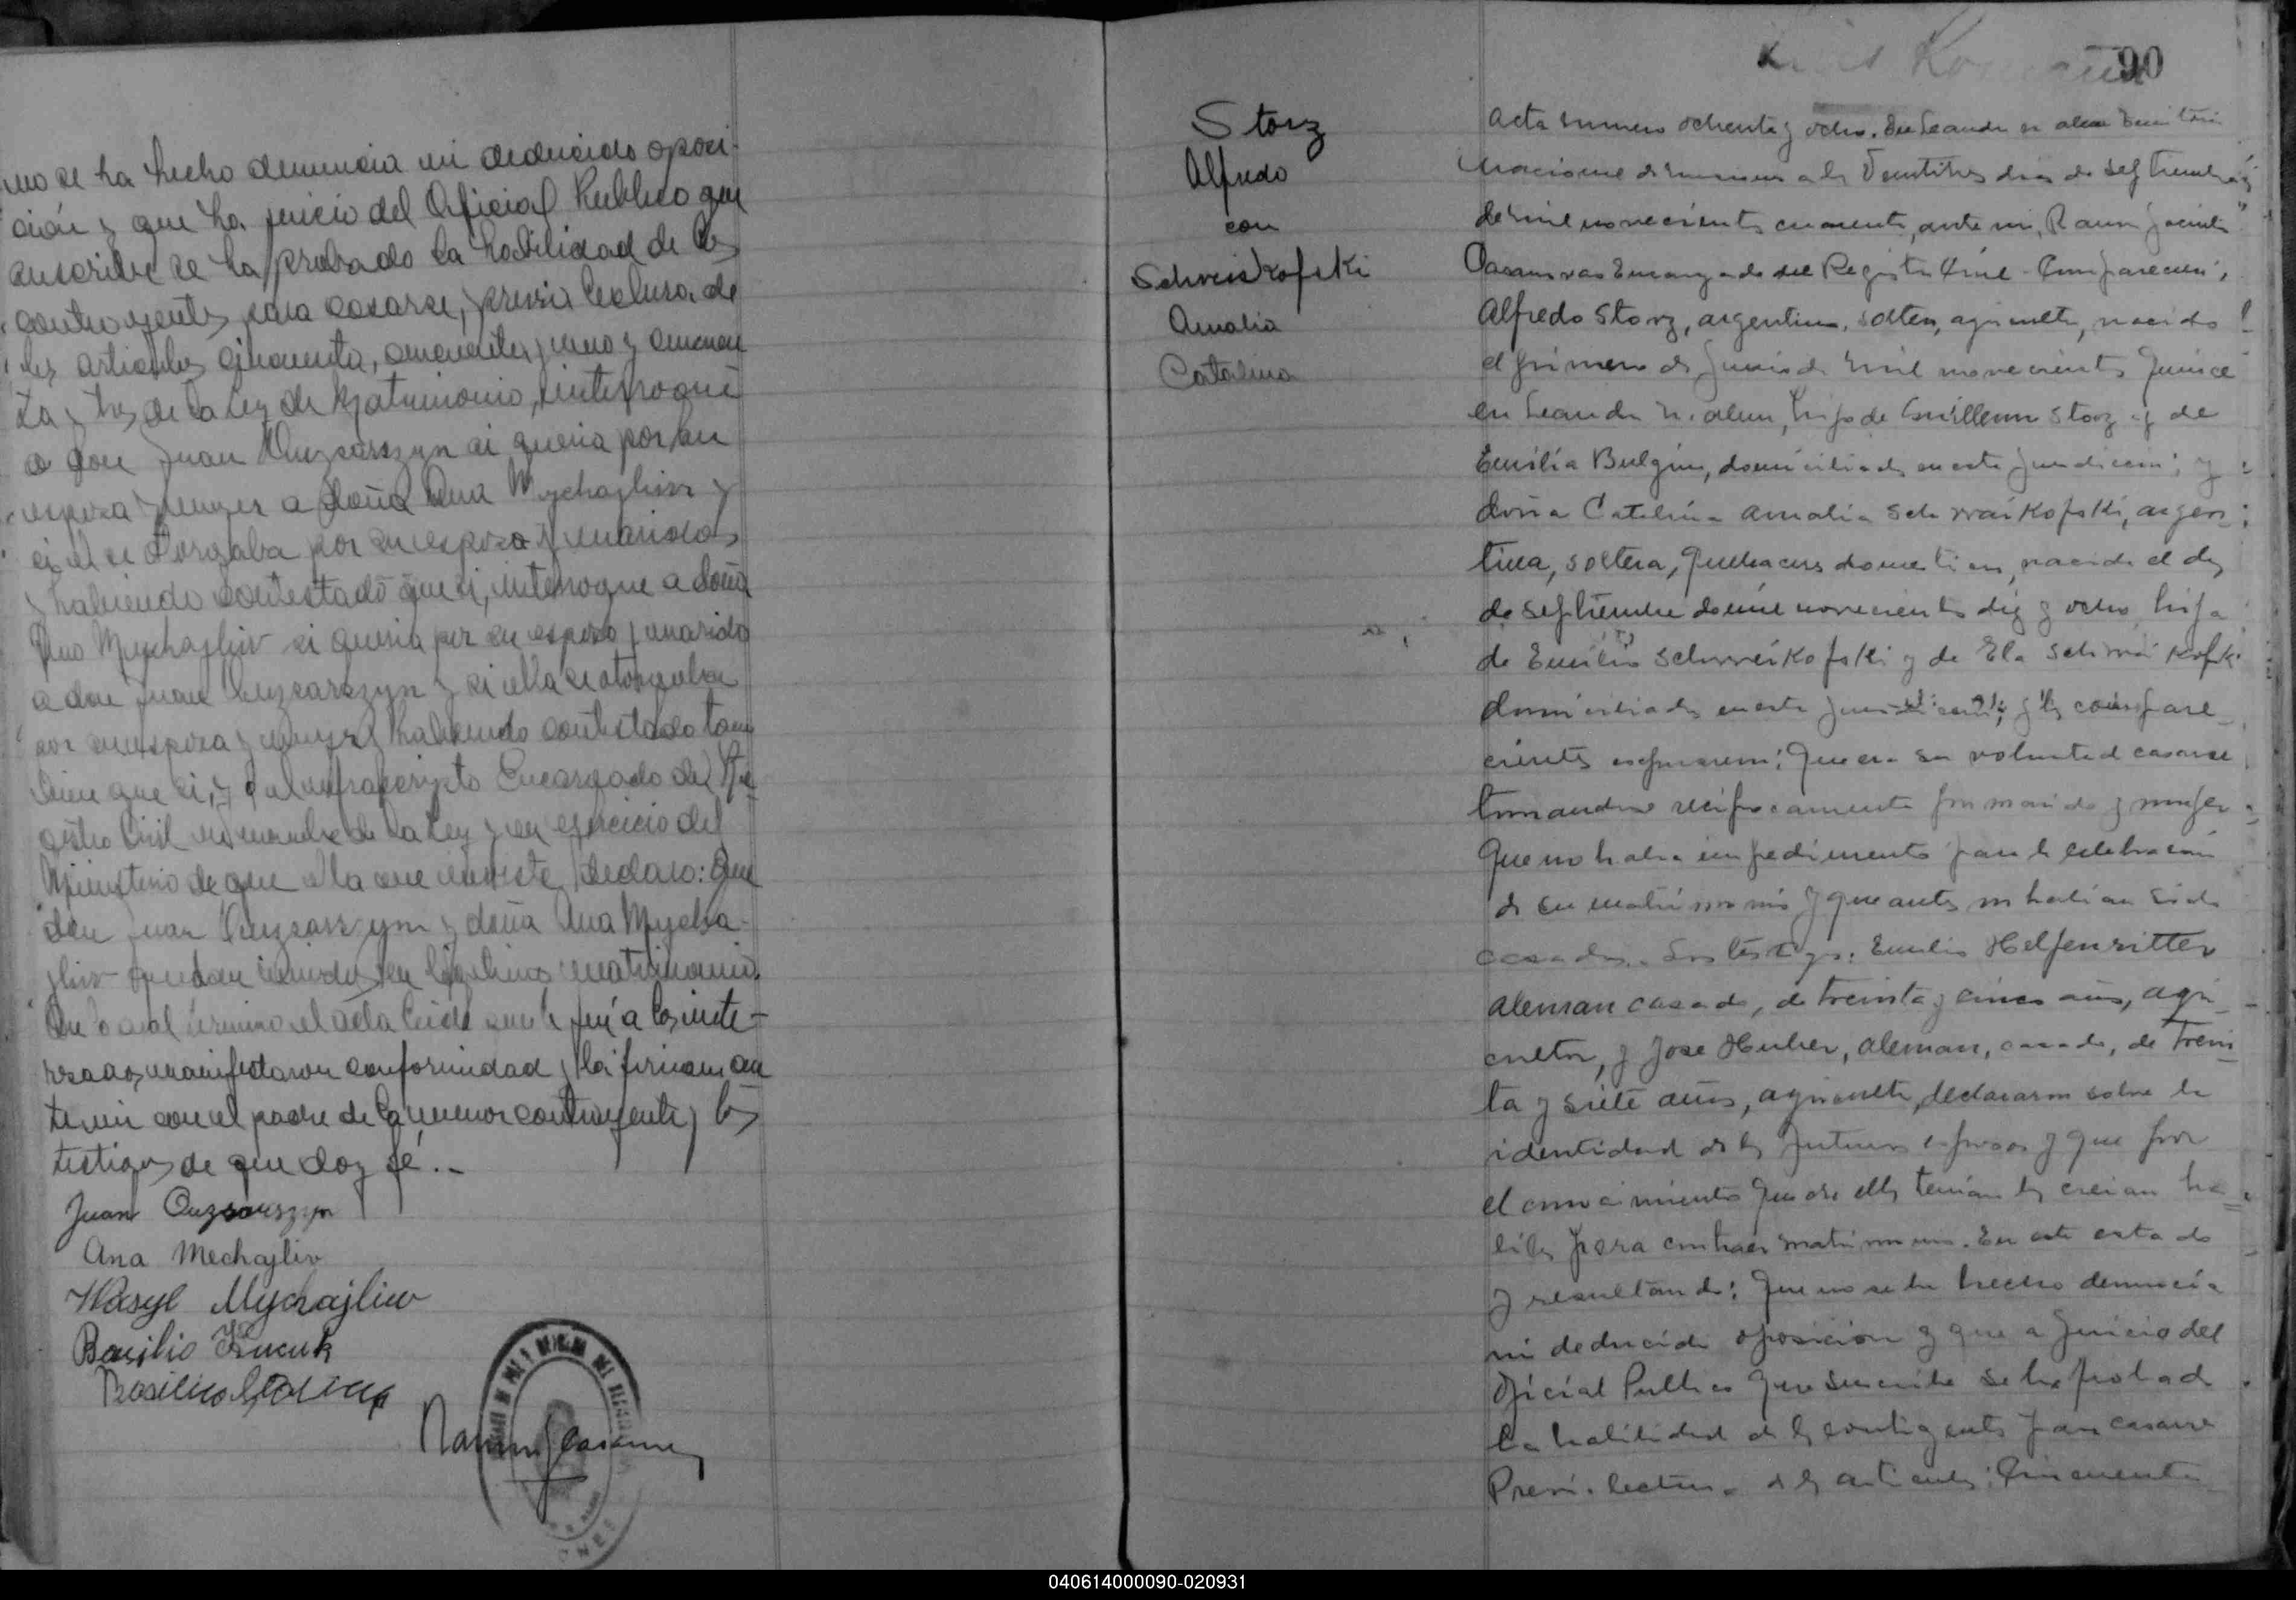 no se ha hecho denuncia ni deducido oposi-
ción y que ha juicio del Oficial Publico que
suscribe se ha probado la habilidad de los
contrayentes para casarse, previa lectura de
los articulos cincuenta, cincuenta y uno y cincuen
ta y tres de la Ley de Matrimonio, interrogué
a don Juan si queria por su
esposa y mujer a doña Ana Mychajliw y
si el se otorgaba por su esposo y marido,
y habiendo contestado que si, interrogue a doña
Ana Mychajliw si queria por su esposo y marido
a don Juan y si ella se otorgaba
por su esposa y mujer y habiendo contestado tam
bien que si, y el infrascripto Encargado del Re-
gistro Civil en nombre de la Ley y en ejercicio del
Ministerio de que ella me inviste, declaro: Que
don Juan y doña Ana Mycha-
jliw quedan unidos en legitimo matrimonio.
Con lo cual termino el acta leida que le fué a los inte-
resados, manifestaron conformidad y la firman an
te mi con el padre de la menor contrayente y los
testigos de que doy fé.-
Juan
Ana Mechajliw
Wasyl Mychajliw
Basilio
Basilio
Ramon J Casamayor
90
Storz
Alfredo
con
Schweiskofski
Amalia
Catalina
Acta numero ochenta y ocho. En Leandro N. Alem Territorio
Nacional de Misiones a los Veintitres dias de septiembre
de mil novecientos cuarenta, ante mi, Ramon Jacinto
Encargado del Registro Civil - Comparecieron,
Alfredo Storz, argentino, soltero, agricultor, nacido
el primero de Junio de mil novecientos quince
en Leandro N. Alem, hijo de Guillermo Storz y de
Emilia Bulgrin, domiciliados en esta jurisdiccion; y
doña Catalina Amalia Schwaikofski, argen-
tina, soltera, quehaceres domesticos, nacida el dos
de septiembre de mil novecientos diez y ocho, hija
de Emilio Schweikofski y de Ela Schwaikofski
domiciliados en esta jurisdiccion; y los compare-
cientes expresaron: Que era su voluntad casarse
tomandose reciprocamente por marido y mujer
Que no habia impedimento para la celebracion
de su matrimonio y que antes no habian sido
casados. Los testigos: Emilio Helfenritter
aleman casado, de treinta y cinco años, agri-
cultor, y Jose Huber, aleman, casado, de trein-
ta y siete años, agricultor, declararon sobre la
identidad de los futuros esposos y que por
el conocimiento que de ellos tenian los creian ha-
biles para contraer matrimonio. En este estado
y resultando: Que no se ha hecho denuncia
ni deducido oposicion y que a juicio del
Oficial Publico que suscribe se ha probado
la habilidad de los contrayentes para casarse
Previa lectura de los articulos: Cincuenta
040614000090-020931